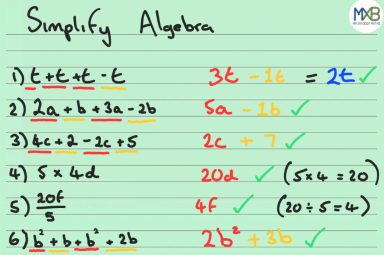 Simplify Algebra
MXB
1) t + t + t - t 3t - 1t = 2t ✓
2) 2a + b + 3a - 2b 5a - 1b ✓
3) 4c + 2 - 2c + 5 2c + 7 ✓
4) 5 × 4d 20d ✓ (5×4 = 20)
5) 20f/5 4f ✓ (20 ÷ 5 = 4)
6) b² + b + b² + 2b 2b² + 3b ✓